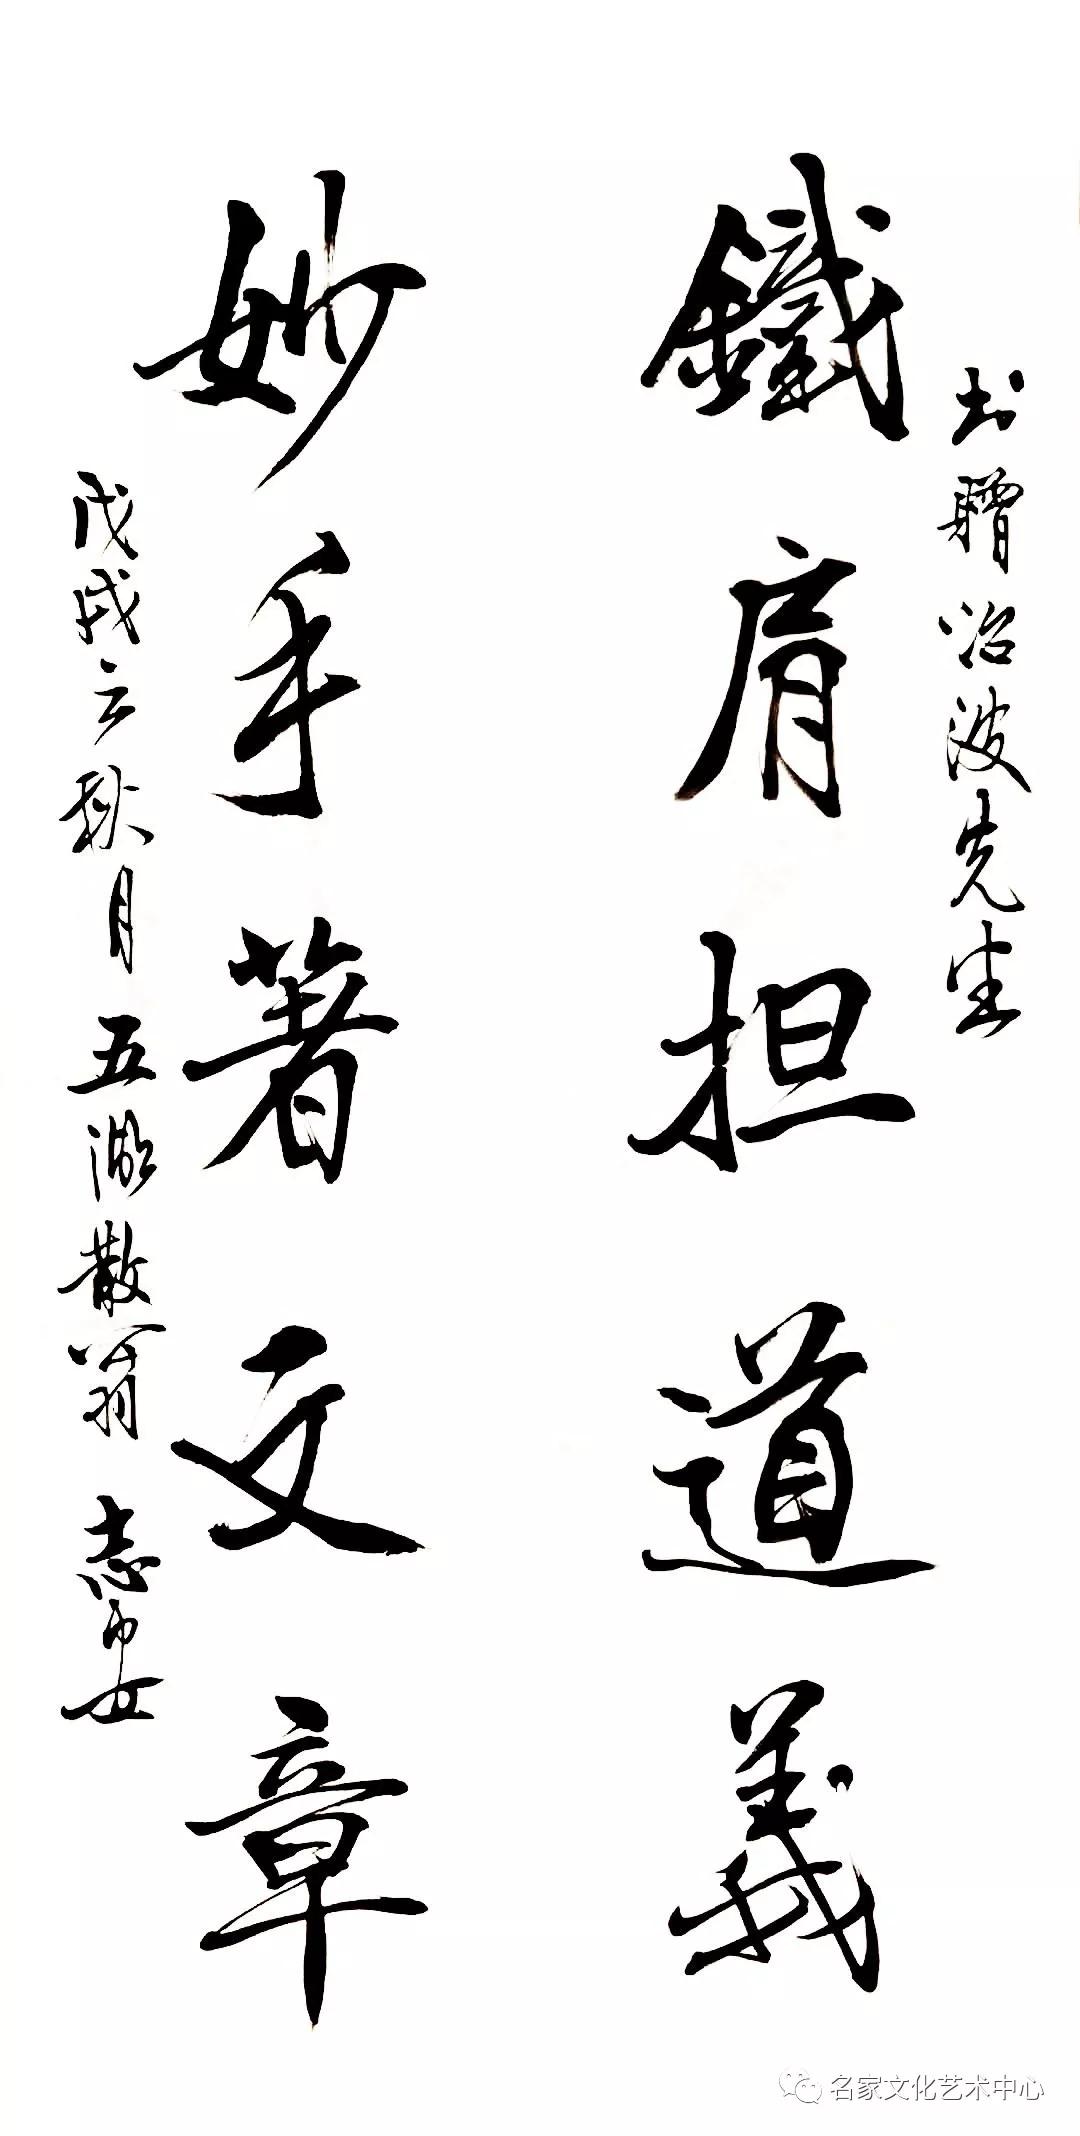 书赠冶波先生
鐵肩担道義
妙手著文章
戊戌之秋月五湖散翁志安
名家文化艺术中心